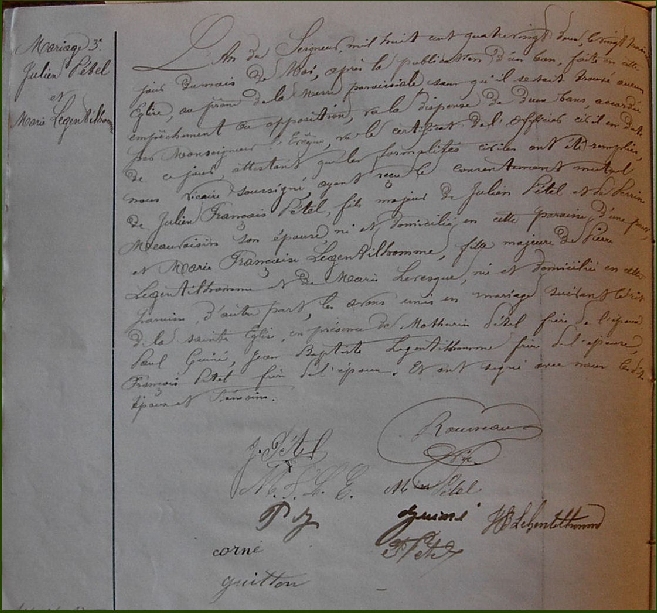 Mariage 3e
Julien Pétel
et
Marie Legentilhomme
L'An du Seigneur, mil huit cent quatre vingt deux, le vingt
jour du mois de Mai, après la publication d'un ban, faite en cette
Eglise, au prône de la Messe paroissiale sans qu'il se soit trouvé aucun
empêchement ou opposition, vu la dispense de deux bans, accordée
par Monseigneur l'Evêque, vu le certificat de l'Officier civil en date
de ce jour, attestant que les formalités civiles ont été remplies,
nous Vicaire soussigné, ayant reçu le consentement mutuel
de Julien François Pétel, fils majeur de Julien Pétel et de
Meauvoisin son épouse né et domicilié en cette paroisse d'une part,
et Marie Françoise Legentilhomme, fille majeure de Pierre
Legentilhomme et de Marie Levesque, née et domiciliée en cette
paroisse d'autre part, les avons unis en mariage suivant le rit
de la sainte Eglise, en présence de Mathurin Pétel frère de l'époux
Paul Guiné, Jean Baptiste Legentilhomme frère de l'épouse,
François Pétel frère de l'époux. Et ont signé avec nous les dits
époux et Témoins.
J. Pétel
Rouneau
Vic
M. F. L. G.
M Pétel
P g
guiné
JB Legentilhomme
F Pétel
corné
guitton